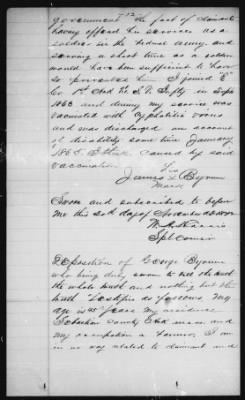 -12-
government the fact of claimant
having offered his services as a
soldier in the Federal Army and
serving a short time as a soldier
would have been sufficient to have
so prevented him. I joined "E"
Co 1st Ind in Sept
1863 and during my service was
vaccinated with syphilitic virus
and was discharged on account
of disability some time January
1865 I think caused by said
vaccination.
his
James X Byrum
mark
Sworn and subscribed to before
me this 20th day of
W. A.
Spl Com
Deposition of George Byrum
who being duly sworn to tell the truth
the whole truth and nothing but the
truth testifies as follows. My
age is years my residence
Sebastian County Ark and
my occupation a Farmer, I am
in no way related to claimant and